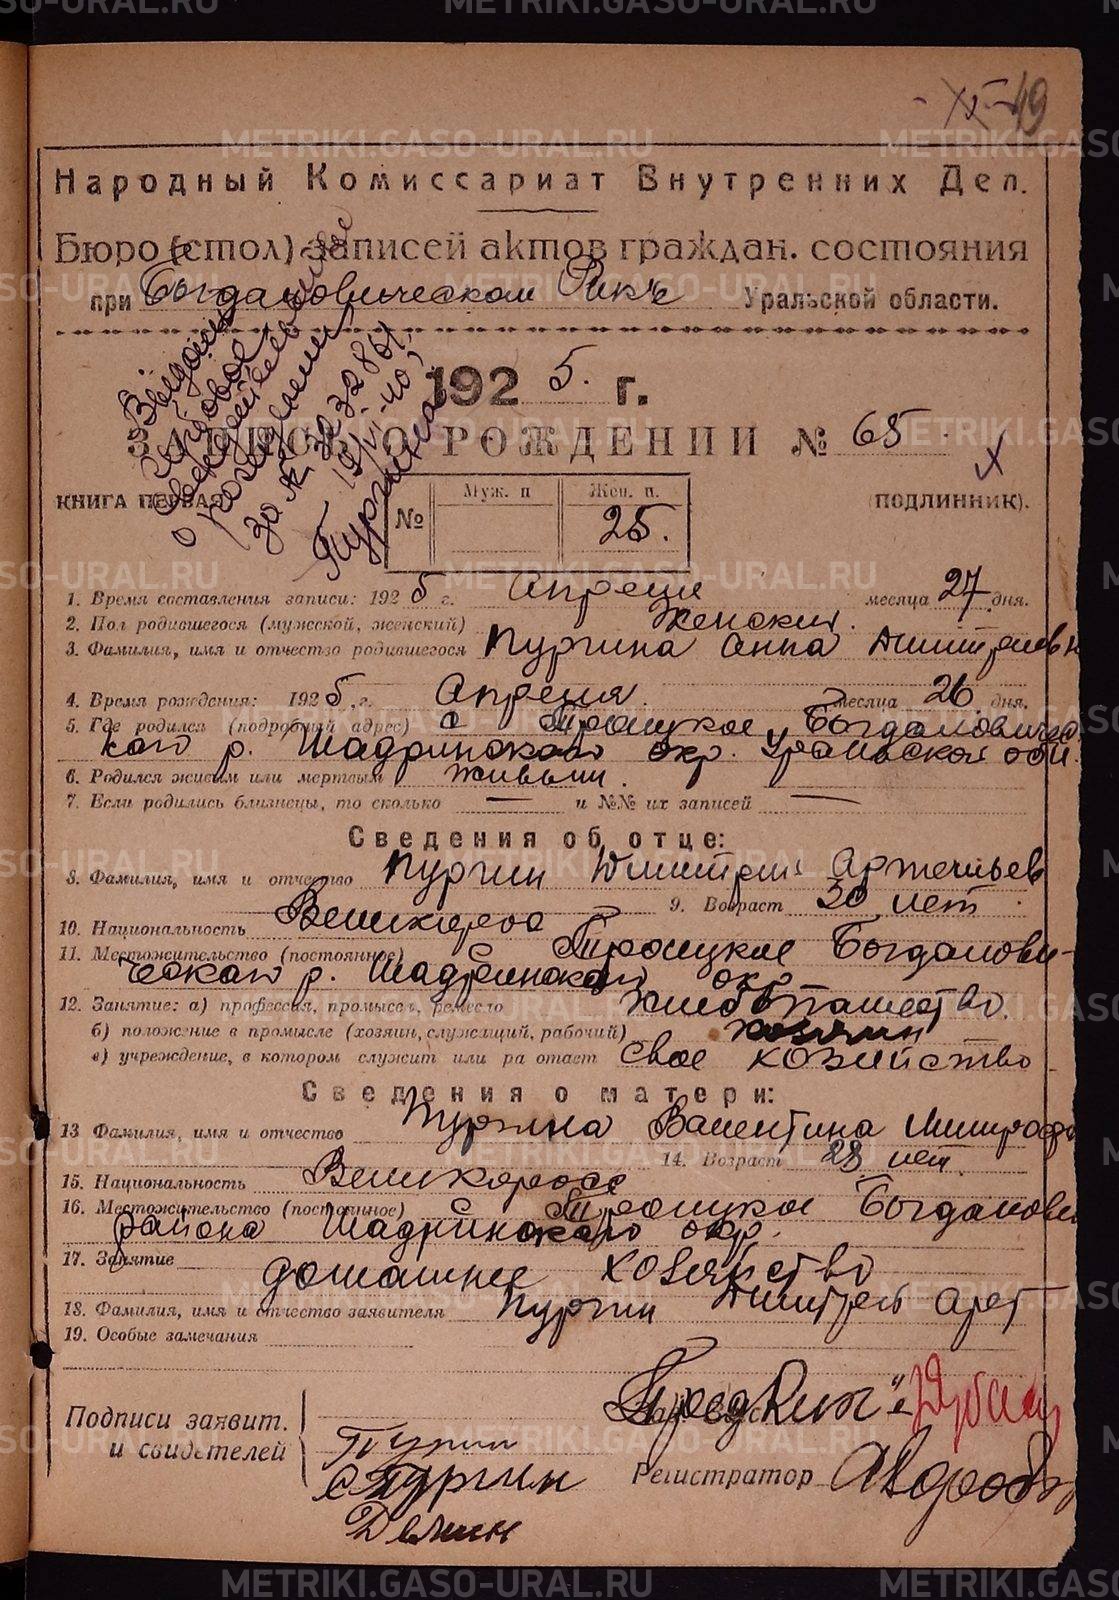 Народный Комиссариат Внутренних Дел.
Бюро (стол) записей актов граждан. состояния
при Богдановическом Рик'е Уральской области.
1925. г.
ЗАПИСЬ О РОЖДЕНИИ № 65
КНИГА ПЕРВАЯ (ПОДЛИННИК).
№ Муж. п Жен. п.
25.
Выдано
повторное
свидетельство
о рождении
за №
19/VI-40
Пургина
1. Время составления записи: 1925 г. Апреля месяца 27 дня.
2. Пол родившегося (мужской, женский) Женский.
3. Фамилия, имя и отчество родившегося Пургина Анна Дмитриевн
4. Время рождения: 1925 г. Апреля месяца 26 дня.
5. Где родился (подробный адрес) с Троицкое Богдановичес
кого р. Шадринского окр. Уральской обл.
6. Родился живым или мертвым живым.
7. Если родились близнецы, то сколько — и №№ их записей —
Сведения об отце:
8. Фамилия, имя и отчество Пургин Дмитрий Артемьев
9. Возраст 30 лет
10. Национальность Великоросс
11. Местожительство (постоянное) Троицкое Богданови-
ческого р. Шадринского окр
12. Занятие: а) профессия, промысел, ремесло хлебопашество.
б) положение в промысле (хозяин, служащий, рабочий) хозяин
в) учреждение, в котором служит или работает свое хозяйство
Сведения о матери:
13 Фамилия, имя и отчество Пургина Валентина Митроф
14. Возраст 28 лет.
15. Национальность Великоросс
16. Местожительство (постоянное) Троицкое Богданови
района Шадринского окр.
17. Занятие домашнее хозяйство
18. Фамилия, имя и отчество заявителя Пургин Дмитрий Арт
19. Особые замечания
Подписи заявит.
и свидетелей
Пургин
Пургин
Демин
Пред Рик'а
Регистратор
METRIKI.GASO-URAL.RU